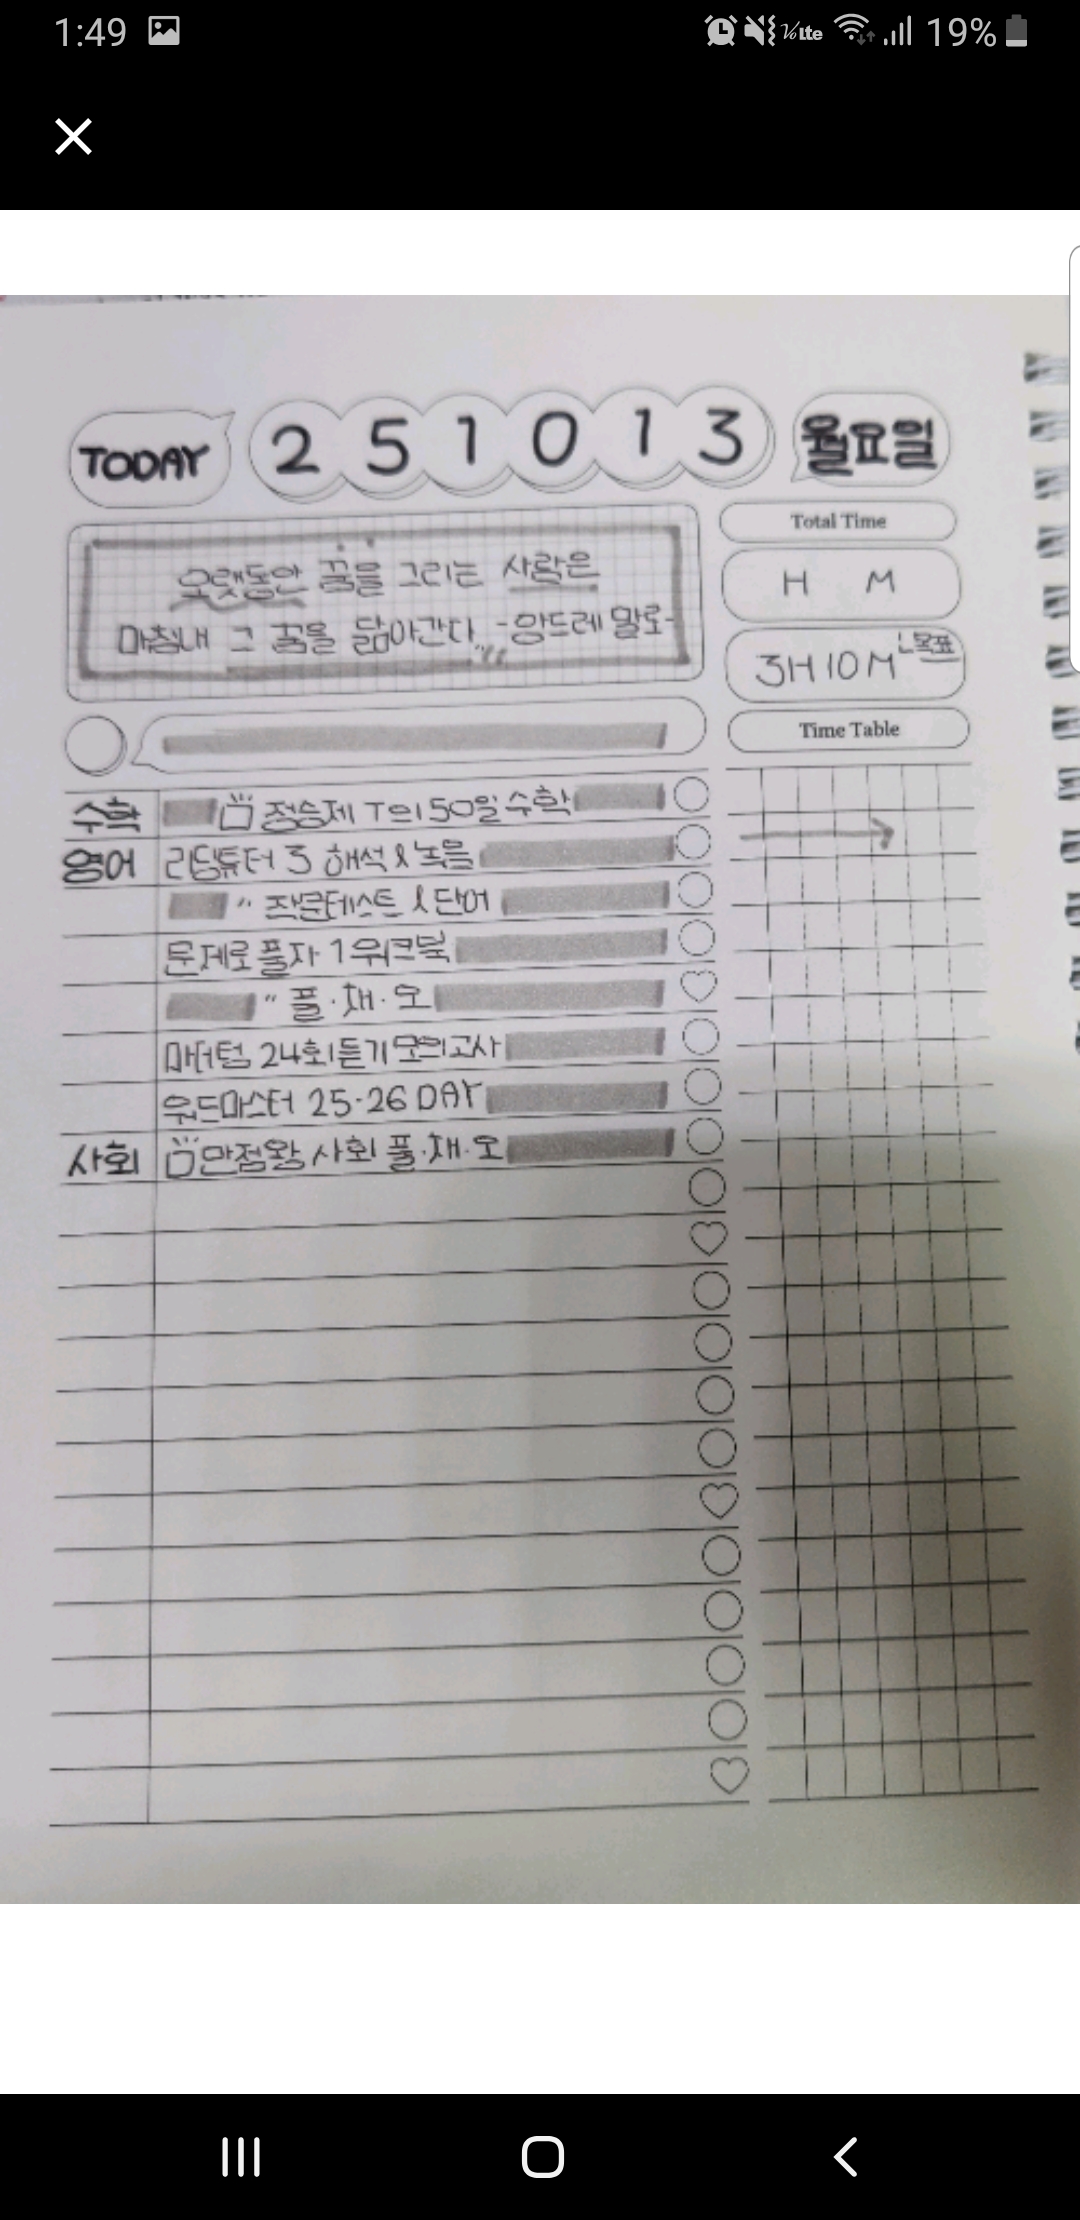 1:49 Vo Lte 19%
TODAY 2 5 1 0 1 3 월요일
오랫동안 꿈을 그리는 사람은
마침내 그 꿈을 닮아간다,, -앙드레 말로-
Total Time
H M
3H 10M ㄴ목표
Time Table
수학 정승제 T의 50일 수학
영어 리딩튜터 3 해석 & 녹음
" 작문테스트 & 단어
문제로 풀자 1 워크북
" 풀·채·오
마더텅 24회 듣기 모의고사
워드마스터 25-26 DAY
사회 만점왕 사회 풀·채·오